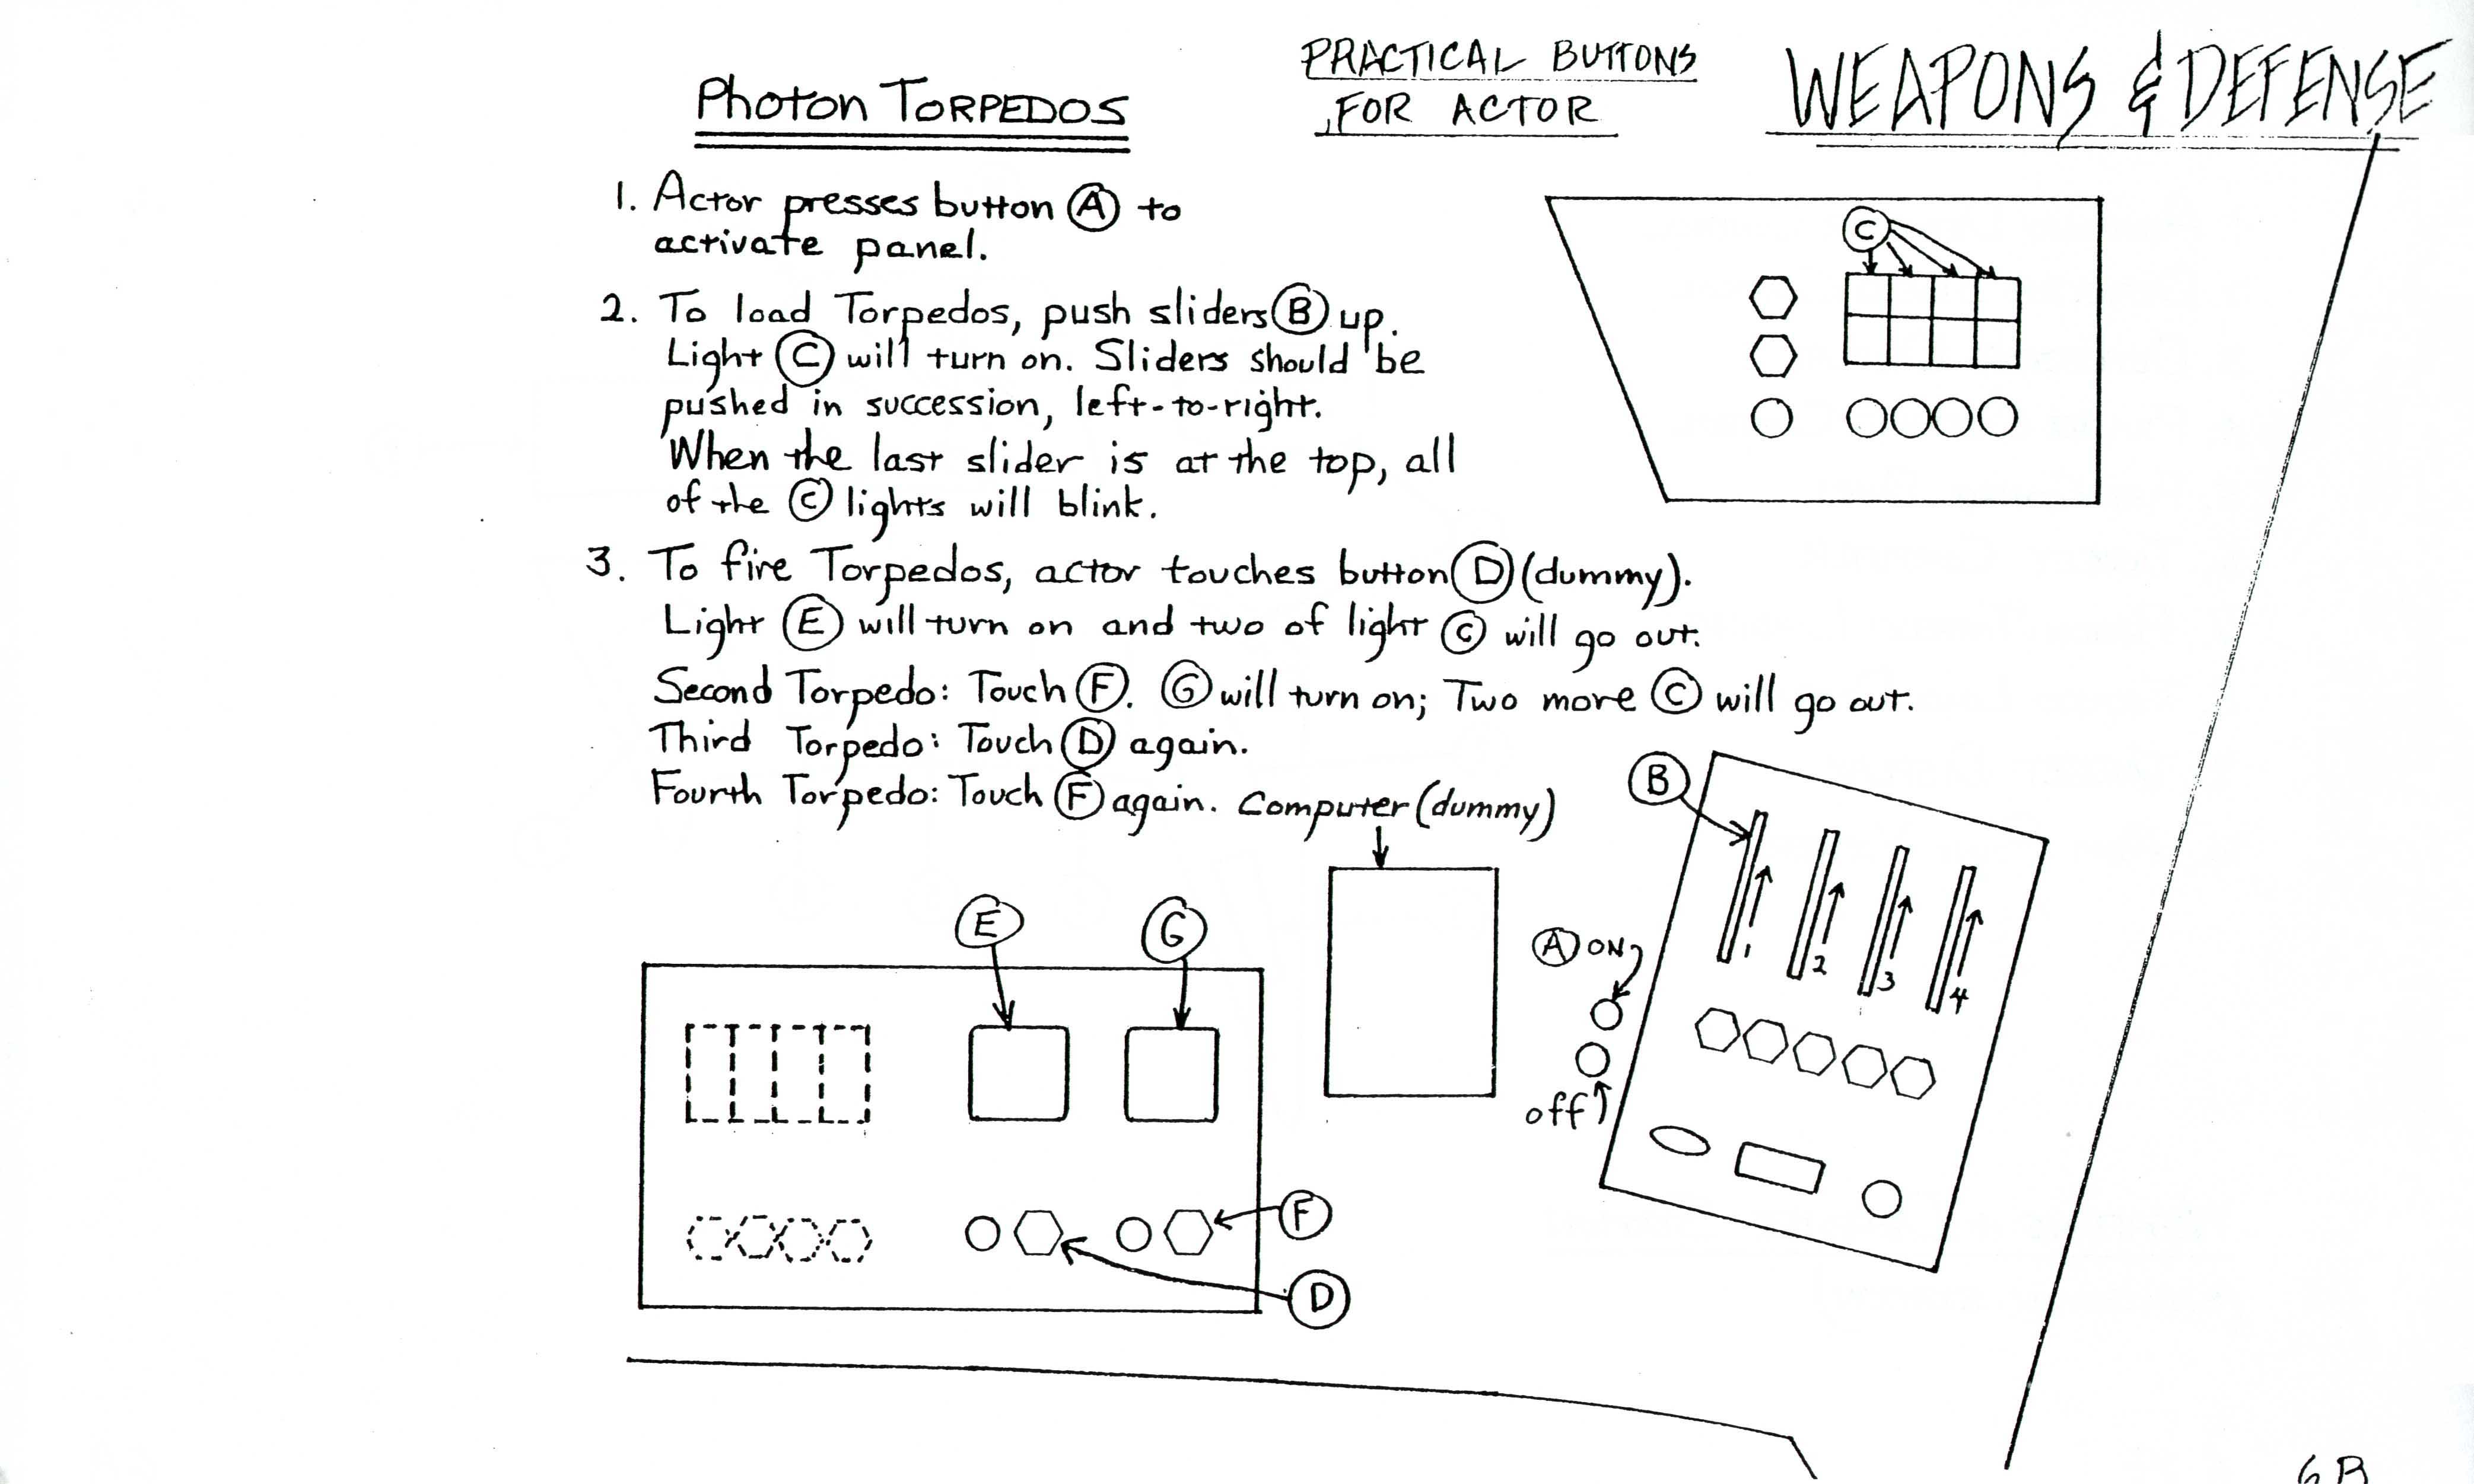 Photon TORPEDOS
PRACTICAL BUTTONS
FOR ACTOR
WEAPONS & DEFENSE
1. Actor presses button Ⓐ to
activate panel.
2. To load Torpedos, push sliders Ⓑ up.
Light Ⓒ will turn on. Sliders should be
pushed in succession, left-to-right.
When the last slider is at the top, all
of the Ⓒ lights will blink.
3. To fire Torpedos, actor touches button Ⓓ (dummy).
Light Ⓔ will turn on and two of light Ⓒ will go out.
Second Torpedo: Touch Ⓕ. Ⓖ will turn on; Two more Ⓒ will go out.
Third Torpedo: Touch Ⓓ again.
Fourth Torpedo: Touch Ⓕ again.
Computer (dummy)
Ⓒ
Ⓑ
1 2 3 4
Ⓐ ON
off
Ⓔ
Ⓖ
Ⓕ
Ⓓ
6B